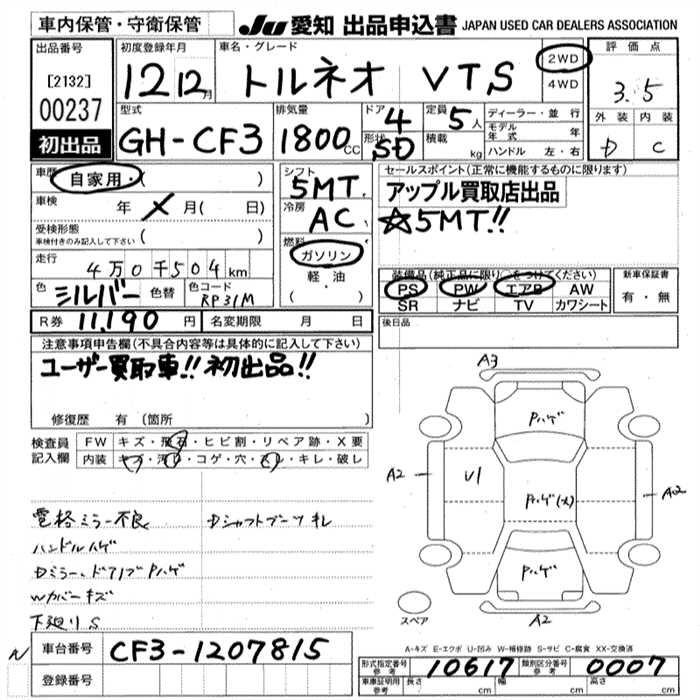 車内保管・守衛保管 JU 愛知 出品申込書 JAPAN USED CAR DEALERS ASSOCIATION
出品番号 初度登録年月 車名・グレード 評価点
[2132] 12 12月 トルネオ VTS 2WD 3.5
00237 4WD
型式 排気量 ドア 4 定員 5人 ディーラー・並行 外装 内装
GH-CF3 1800CC 形状 SD 積載 kg モデル年式 年
初出品 ハンドル 左・右 D C
車歴 自家用・( ) シフト 5MT セールスポイント(正常に機能するものに限ります)
車検 年 X 月( 日) 冷房 AC アップル買取店出品
受検形態 ( ) ☆5MT!!
車検付きのみ記入して下さい 燃料 ガソリン
走行 4万0千504km 軽・油
装備品(純正品に限り○をつけてください) 新車保証書
色 シルバー 色替 色コード RP31M ( ・ ) PS PW エアB AW 有・無
SR ナビ TV カワシート
R券 11,190 円 名変期限 月 日 後日品
注意事項申告欄(不具合内容等は具体的に記入して下さい)
ユーザー買取車!! 初出品!!
修復歴 有 (箇所
検査員 FW キズ・飛石・ヒビ割・リペア跡・X要
記入欄 内装 キズ・汚れ・コゲ・穴・スレ・キレ・破レ
電格ミラー不良 Dシャフトブーツキレ
ハンドルハゲ
Dミラー、ドアノブPハゲ
Wカバーキズ
下廻りS
A3
Pハゲ
A2 U1 Pハゲ(大) A2
Pハゲ
スペア A2
A-キズ E-エクボ U-凹み W-補修跡 S-サビ C-腐食 XX-交換済
N 車台番号 CF3-1207815
登録番号
形式指定番号 参考 10617 類別区分番号 参考 0007
車庫証明用 参考 長さ cm 幅 cm 高さ cm